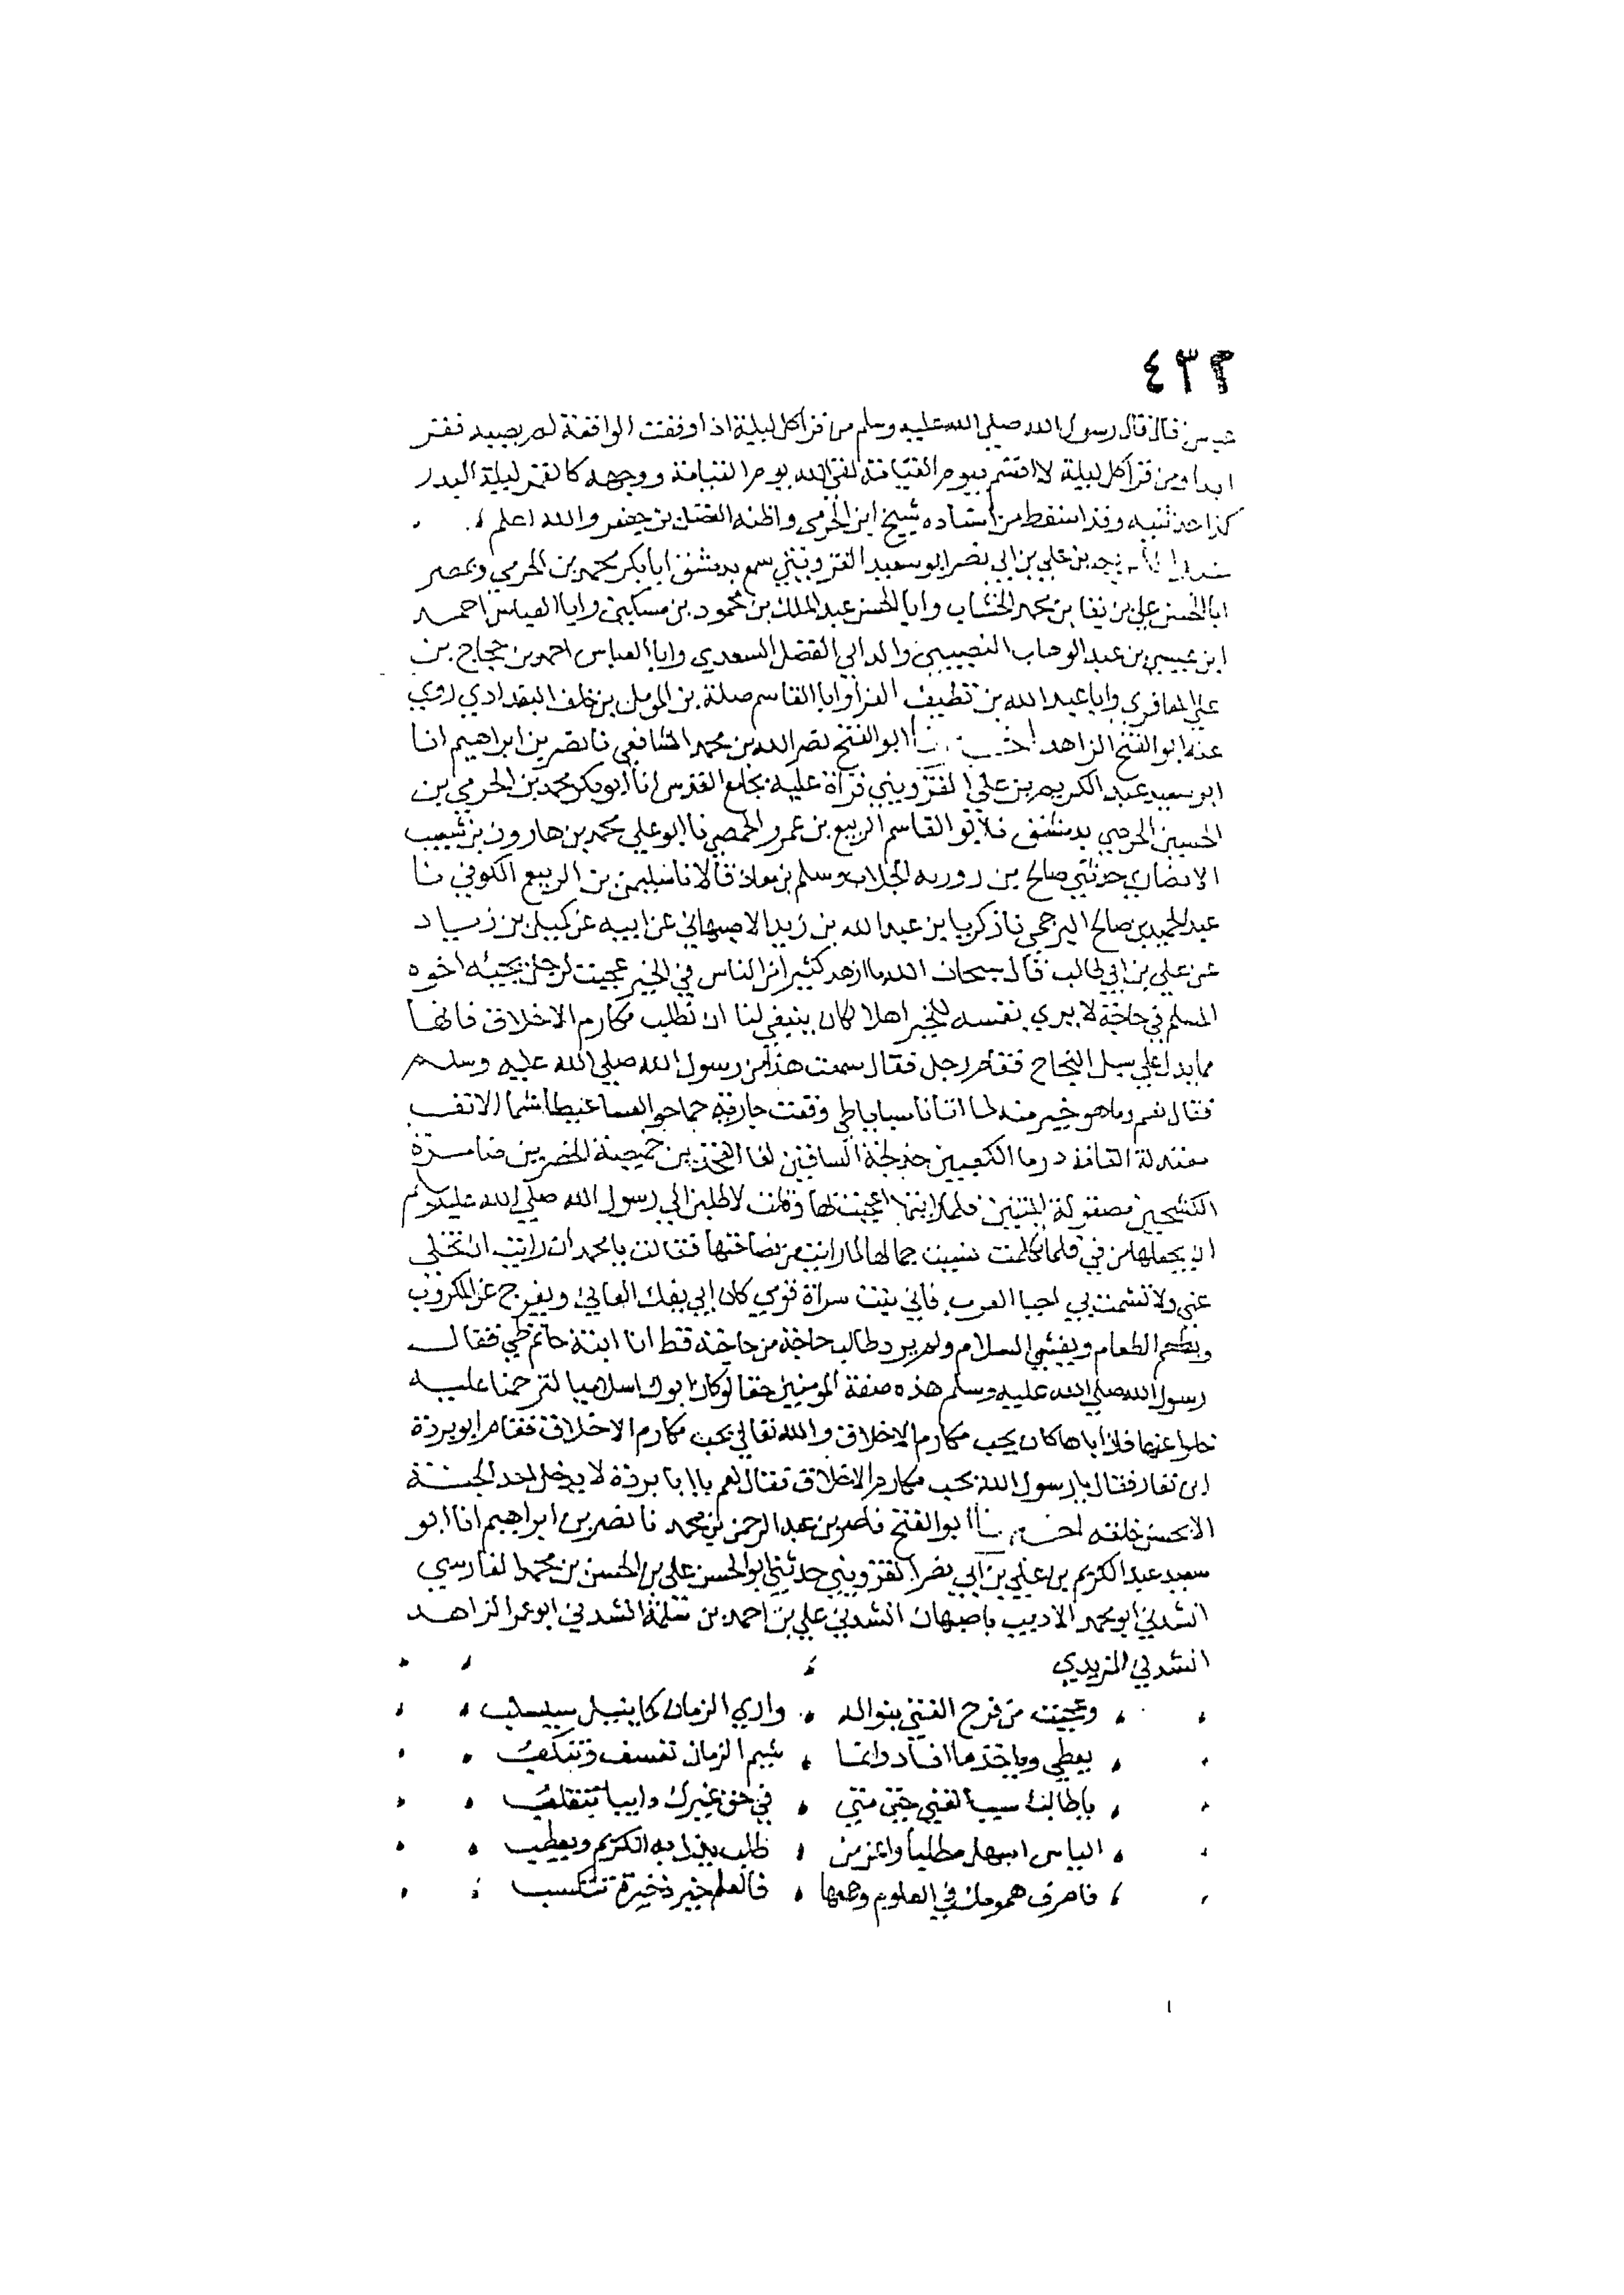 ٤٣٢
عباس قال قال رسول الله صلي الله عليه وسلم من قرأ كل ليلة اذا وقعت الواقعة لم يصبه فقر
ابدا ومن قرأ كل ليلة لا اقسم بيوم القيامة لقي الله يوم القيامة ووجهه كالقمر ليلة البدر
كذا حدثنيه وقد اسقط من اسناده شيخ ابن الحرمي واظنه الفضل بن جعفر والله اعلم
بن علي بن ابي نصر ابو سعيد القزويني سمع بدمشق ابا بكر محمد بن الحرمي وبمصر
ابا الحسن علي بن بقا بن محمد الخشاب وابا الحسن عبد الملك بن محمود بن مسكين وابا العباس احمد
ابن عيسي بن عبد الوهاب النصيبي والد ابي الفضل السعدي وابا العباس احمد بن حجاج بن
علي المعافري وابا عبد الله بن نظيف الفرا وابا القاسم صلة بن المومل بن خلف البغدادي روي
عنه ابو الفتح الزاهد ابو الفتح نصر الله بن محمد الشافعي نا نصر بن ابراهيم انا
ابو سعيد عبد الكريم بن علي القزويني قرأة عليه بجامع القدس انا ابو بكر محمد بن الحرمي بن
الحسين الحرمي بدمشق نا ابو القاسم الربيع بن عمرو الحمصي نا ابو علي محمد بن هارون بن شعيب
الانصاري حدثني صالح بن الجلاب وسلم بن معاذ قالا نا سليمن بن الربيع الكوفي نا
عبد الحميد بن صالح البرجمي نا زكريا بن عبد الله بن زيد الاصبهاني عن ابيه عن كميل بن زياد
عن علي بن ابي طالب قال سبحان الله ما ازهد كثيرا من الناس في الخير عجبت لرجل يجيئه اخوه
المسلم في حاجة لا يري نفسه للخير اهلا لكان ينبغي لنا ان نطلب مكارم الاخلاق فانها
مما يدل علي سبل النجاح فقام رجل فقال سمعت هذا من رسول الله صلي الله عليه وسلم
فقال نعم وما هو خير منه لما اتانا سبايا طي وقعت جارية حما حوا لعسا عيطا شما الانف
معتدلة القامة درما الكعبين خدلجة الساقين لفا الفخذين خميصة الخصرين ضامرة
الكشحين مصقولة المتنين فلما رايتها اعجبت بها وقلت لاطلبن الي رسول الله صلي الله عليه وسلم
ان يجعلها من في فلما تكلمت نسيت جمالها لما رايت من فصاحتها فقالت يا محمد ان رايت ان تخلي
عني ولا تشمت بي احيا العرب فاني بنت سراة قومي كان ابي يفك العاني ويفرج عن المكروب
ويطعم الطعام ويفشي السلام ولم يرد طالب حاجة من حاجة قط انا ابنة حاتم طي فقال
رسول الله صلي الله عليه وسلم هذه صفة المومنين حقا لو كان ابوك اسلاميا لترحمنا عليه
خلوا عنها فان اباها كان يحب مكارم الاخلاق والله تعالي يحب مكارم الاخلاق فقام ابو بردة
ابن نيار فقال يا رسول الله يحب مكارم الاخلاق فقال نعم يا ابا بردة لا يدخل احد الجنة
الا بحسن خلقه ابو الفتح ناصر بن عبد الرحمن بن محمد نا نصر بن ابراهيم انا ابو
سعيد عبد الكريم بن علي بن ابي نصر القزويني حدثني ابو الحسن علي بن الحسن بن محمد الفارسي
انشدني ابو محمد الاديب باصبهان انشدني علي بن احمد بن انشدني ابو عمر الزاهد
انشدني اليزيدي
وعجبت من فرح الغني بنواله ، واري الزمان كما ينيل سيسلب
يعطي وياخذ ما افاد دائما ، شيم الزمان
يا طالب سيب الغني حتي متي ، في حق غيرك دايبا تتقلب
الياس اسهل مطلبا واعز من ، طلب الكريم ويعطب
فاصرف همومك في العلوم وجمعها ، فالعلم خير ذخيرة تتكسب